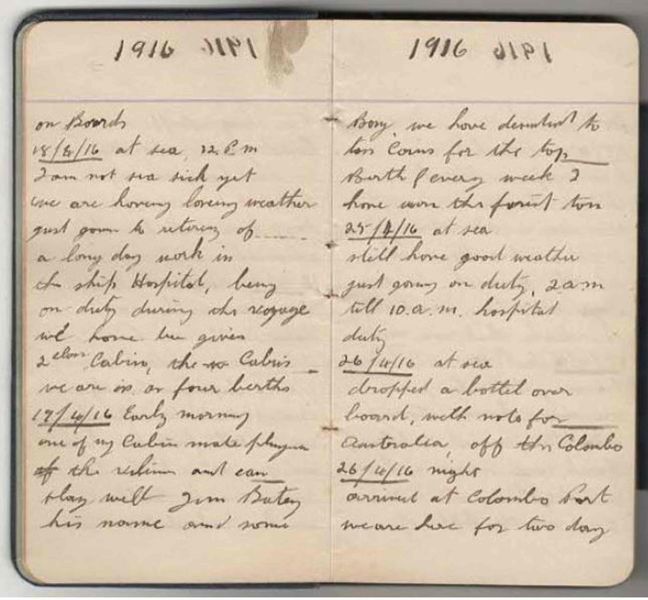 1916
on Boards
18/4/16 at sea, 12. P.m
I am not sea sick yet
we are having loving weather
just going to retiring of
a long day work in
the ship Hospital, being
on duty during the voyage
we have be given
2 class Cabin, the Cabin
we are in is four berths
19/4/16 Early morning
one of my Cabin mate
the and can
play well Jim Batey
his name and some
1916
Boy, we have decided to
toss Coins for the top
Berth / every week I
have won the forist toss
25/4/16 at sea
still have good weather
just going on duty, 2 am
till 10.a.m. hospital
duty
26/4/16 at sea
dropped a bottel over
board, with note for
Australia, off the Colombo
26/4/16 night
arrived at Colombo Port
we are here for two day